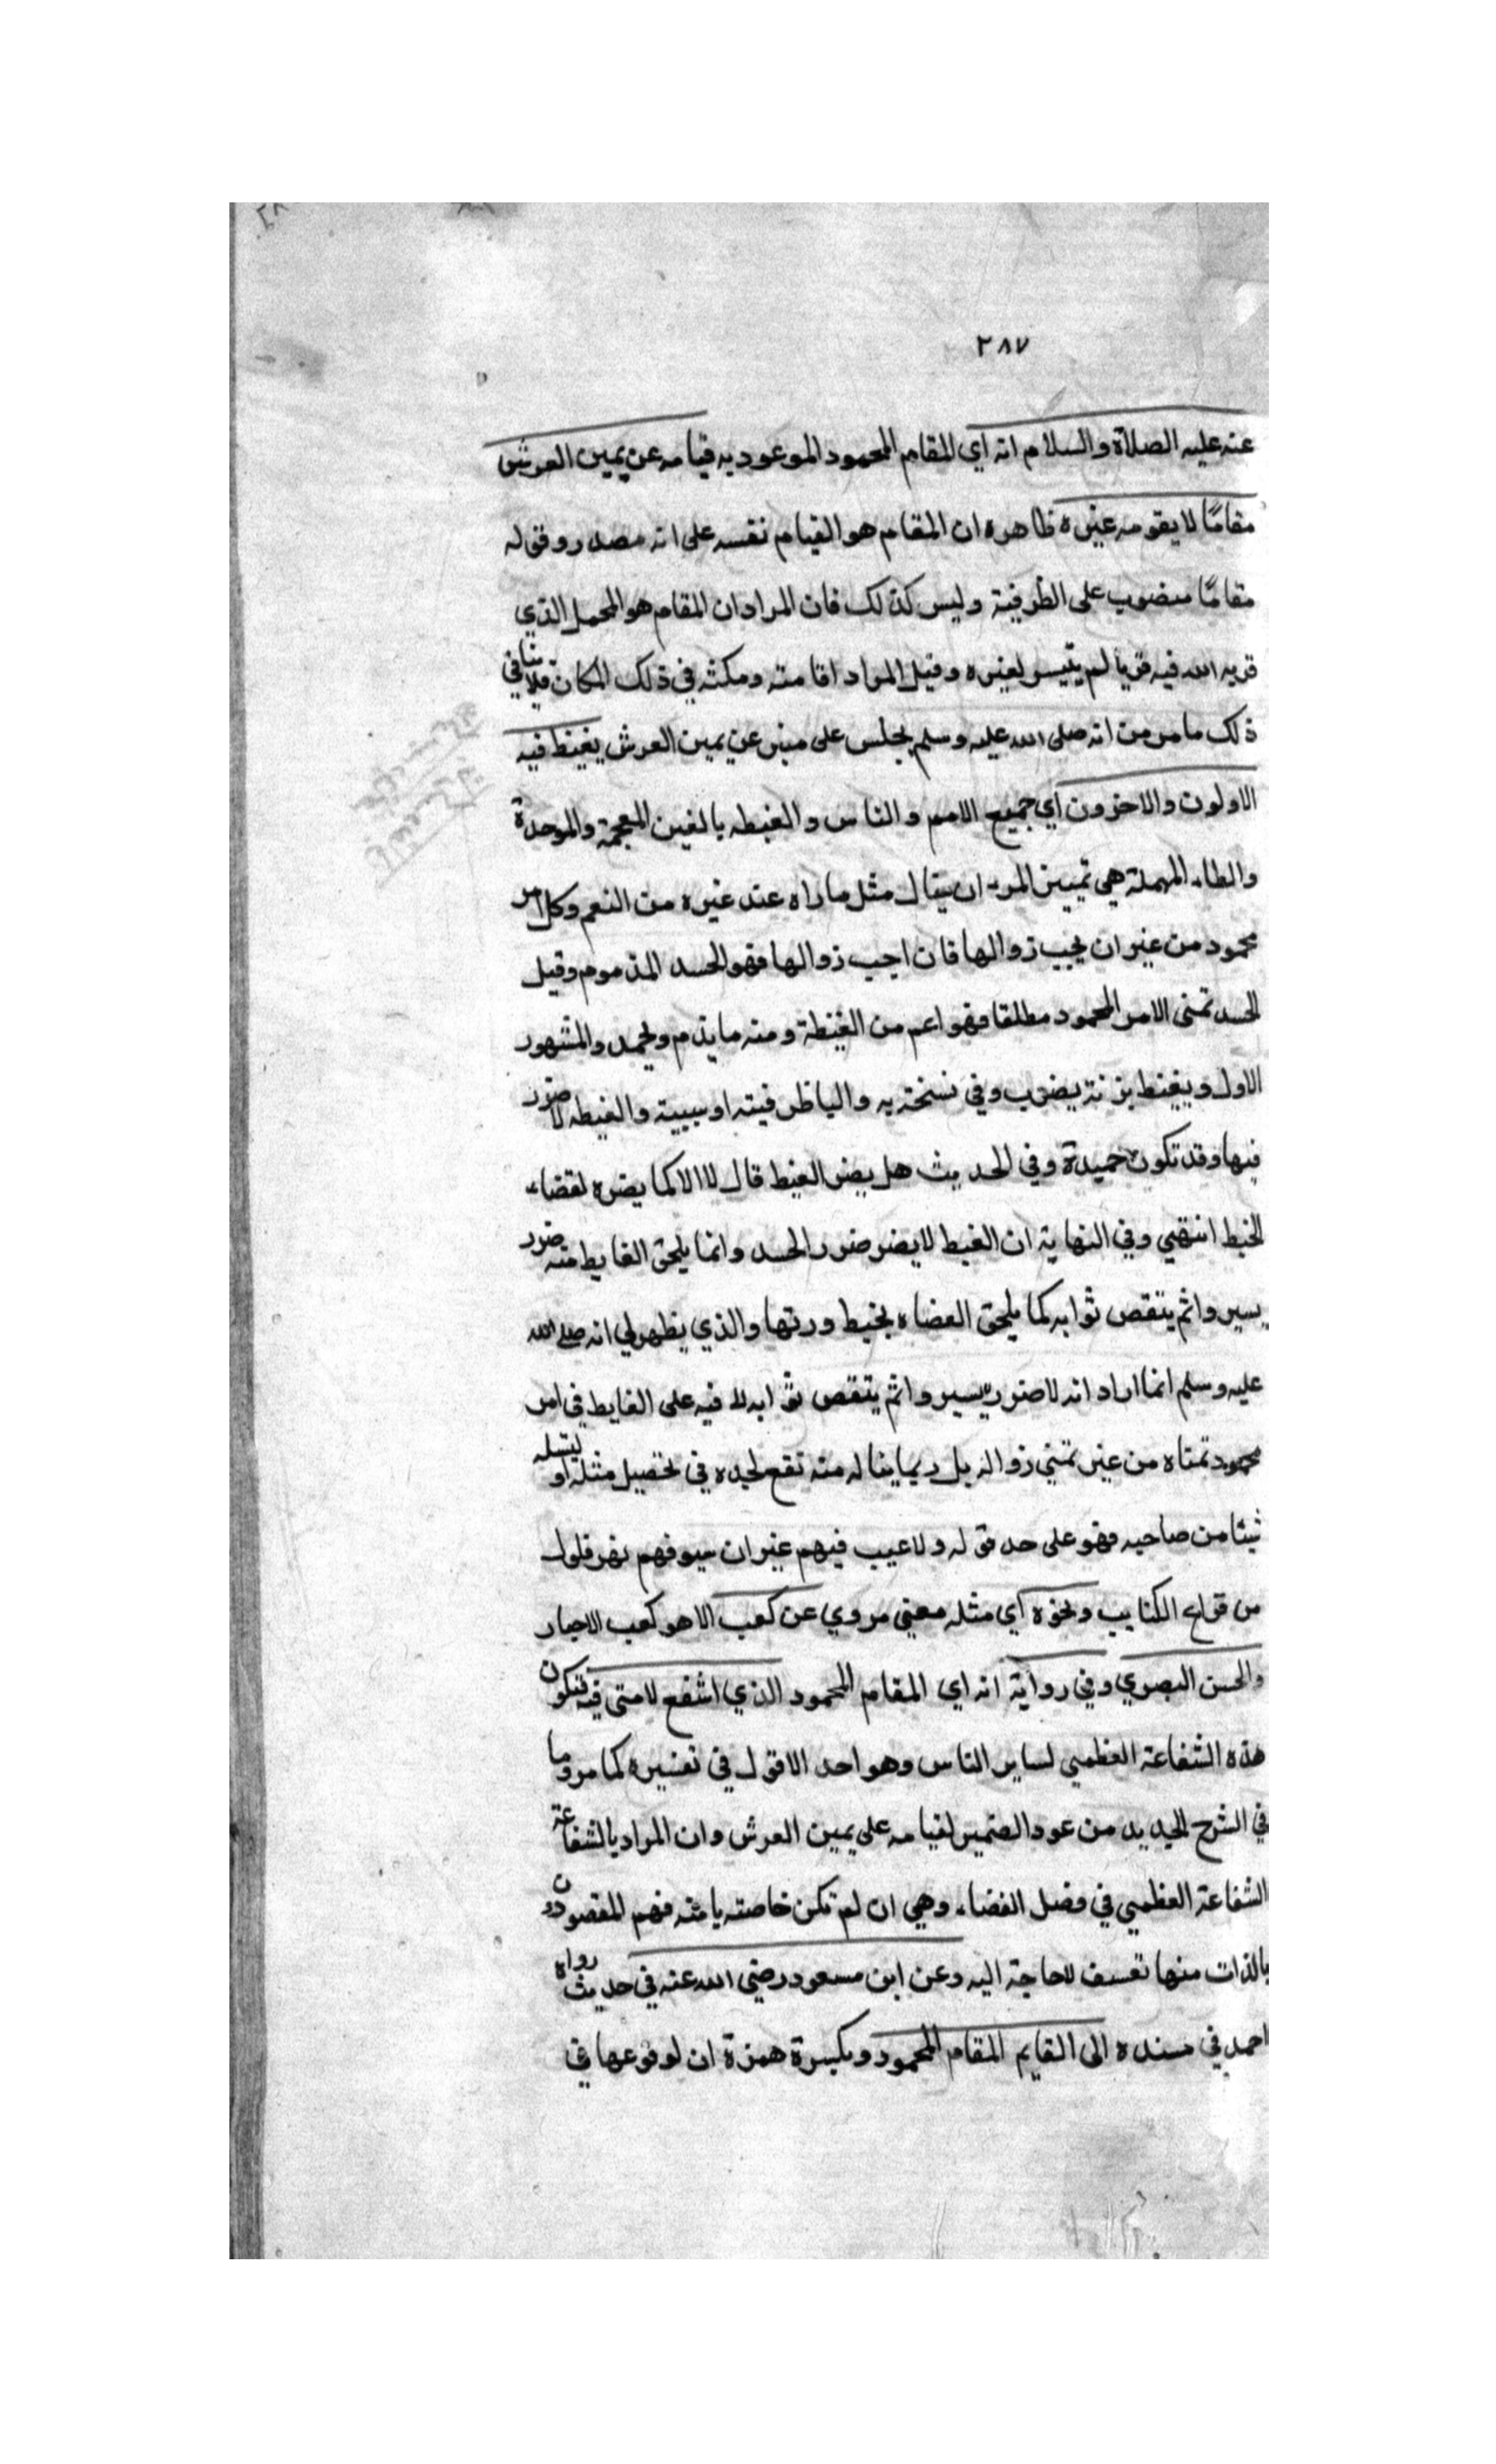 ٢٨٧
عنه عليه الصلاة والسلام انه اي المقام المحمود الموعود به قيامه عن يمين العرش
مقامًا لا يقومه غيره ظاهره ان المقام هو القيام نفسه على انه مصدر وقوله
مقامًا منصوب على الظرفية وليس كذلك فان المراد ان المقام هو المحل الذي
قربه الله فيه قربا لم يتيسر لغيره وقيل المراد اقامته ومكثه في ذلك المكان فلا ينافي
ذلك ما مر من انه صلى الله عليه وسلم يجلس على منبر عن يمين العرش يغبط فيه
الاولون والاخرون اي جميع الامم والناس والغبطه بالغين المعجمة والموحدة
والطاء المهملة هي تمييز المرء ان ينال مثل ما راه عند غيره من النعم وكل امر
محمود من غير ان يحب زوالها فان احب زوالها فهو الحسد المذموم وقيل
الحسد تمنى الامر المحمود مطلقا فهو اعم من الغبطة ومنه ما يذم ويحمد والمشهور
الاول ويغبط بزنة يضرب وفي نسخة به والبا ظرفيته او سببية والغبطه لا ضرر
فيها وقد تكون حميدة وفي الحديث هل يضر الغبط قال لا الا كما يضره لقضاء
الخبط انتهي وفي النهاية ان الغبط لا يضر ضرر الحسد وانما يلحق الغابط منه ضرر
يسير واثم ينقص ثوابه كما يلحق العضاه بخبط ورتها والذي يظهر لي انه صلى الله
عليه وسلم انما اراد انه لا ضرر يسير واثم ينقص ثوابه لا فيه على الغابط في امر
محمود تمناه من غير تمني زواله بل ربما يناله منه نفع لجده في تحصيل مثله او
شيئا من صاحبه فهو على حد قوله ولا عيب فيهم غير ان سيوفهم بهن فلول
من قراع الكتايب ونحوه اي مثله معني مروي عن كعب الا هو كعب الاحبار
والحسن البصري وفي رواية انه اي المقام المحمود الذي اشفع لامتى فيه فتكون
هذه الشفاعة العظمى لساير الناس وهو احد الاقول في تفسيره كما مر وما
في الشرح الجديد من عود الضمير لقيامه على يمين العرش وان المراد بالشفاعة
الشفاعة العظمي في فصل القضاء وهي ان لم تكن خاصته بامته فهم المقصودون
بالذات منها تعسف لا حاجة اليه وعن ابن مسعود رضي الله عنه في حديث رواه
احمد في مسنده الى القايم المقام المحمود وبكسرة همزة ان لوقوعها في